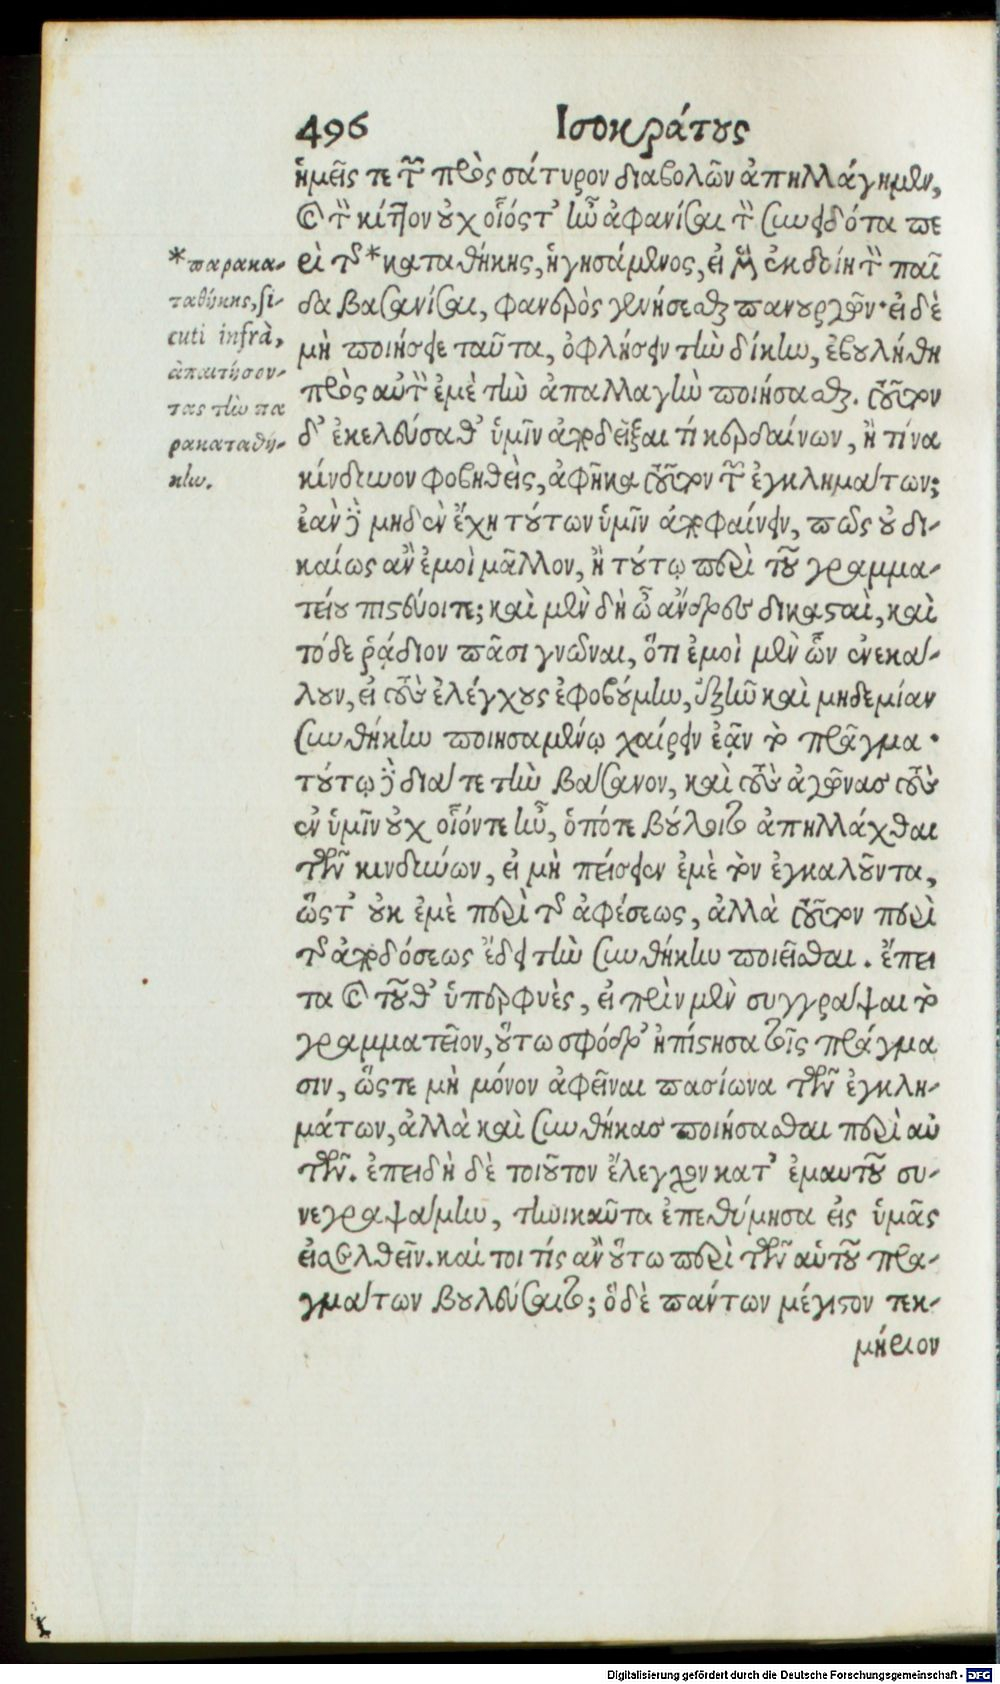 496 Ισοκράτους
ἡμεῖς τε τῶν πρὸς σάτυρον διαβολῶν ἀπηλλάγημεν,
καὶ τὸν κίτ]ον οὐχ οἷός τ' ἦν ἀφανίσαι τὸν συνειδότα πε
*παρακα-
ρὶ τῆς *καταθήκης, ἡγησάμενος, εἰ μὲν ἐκδοίη τὸν παῖ
ταθήκης, si-
δα βασανίσαι, φανερὸς γενήσεσθαι πανουργῶν· εἰ δὲ
cuti infrà,
μὴ ποιήσειε ταῦτα, ὀφλήσειν τὴν δίκην, ἐβουλήθη
ἀπαιτήσον-
πρὸς αὐτὸν ἐμὲ τὴν ἀπαλλαγὴν ποιήσασθαι. τοῦτον
τας τὴν πα
δ' ἐκελεύσαθ' ὑμῖν ἀποδεῖξαι τί κερδαίνων, ἢ τίνα
ρακαταθή-
κίνδυνον φοβηθεὶς, ἀφῆκα τοῦτον τῶν ἐγκλημάτων;
κην.
ἐὰν δὲ μηδὲν ἔχη τούτων ὑμῖν ἀποφαίνειν, πῶς οὐ δι-
καίως ἂν ἐμοὶ μᾶλλον, ἢ τούτῳ περὶ τοῦ γραμμα-
τείου πιστεύοιτε; καὶ μὲν δὴ ὦ ἄνδρες δικασταὶ, καὶ
τόδε ῥᾴδιον πᾶσι γνῶναι, ὅτι ἐμοὶ μὲν ὧν ἐνεκά-
λουν, εἰ τοὺς ἐλέγχους ἐφοβούμην, ἐξῆν καὶ μηδεμίαν
συνθήκην ποιησαμένῳ χαίρειν ἐᾷν τὸ πρᾶγμα·
τούτῳ δὲ διά τε τὴν βάσανον, καὶ τοὺς ἀγῶνας τοὺς
ἐν ὑμῖν οὐχ οἷόντε ἦν, ὁπότε βούλοιτο ἀπηλλάχθαι
τῶν κινδύνων, εἰ μὴ πείσειεν ἐμὲ τὸν ἐγκαλοῦντα,
ὥςτ' οὐκ ἐμὲ περὶ τῆς ἀφέσεως, ἀλλὰ τοῦτον περὶ
τῆς ἀποδόσεως ἔδει τὴν συνθήκην ποιεῖσθαι. ἔπει
τα καὶ τοῦθ' ὑπερφυὲς, εἰ πρὶν μὲν συγγράψαι τὸ
γραμματεῖον, οὕτω σφόδρ' ἠπίστησα τοῖς πράγμα
σιν, ὥςτε μὴ μόνον ἀφεῖναι πασίωνα τῶν ἐγκλη-
μάτων, ἀλλὰ καὶ συνθήκας ποιήσασθαι περὶ αὐ
τῶν. ἐπειδὴ δὲ τοιοῦτον ἔλεγχον κατ' ἐμαυτοῦ συ-
νεγραψάμην, τηνικαῦτα ἐπεθύμησα εἰς ὑμᾶς
εἰσελθεῖν. καί τοι τίς ἂν οὕτω περὶ τῶν αὑτοῦ πρα-
γμάτων βουλεύσαιτο; ὃ δὲ πάντων μέγιστον τεκ-
μήριον
Digitalisierung gefördert durch die Deutsche Forschungsgemeinschaft - DFG